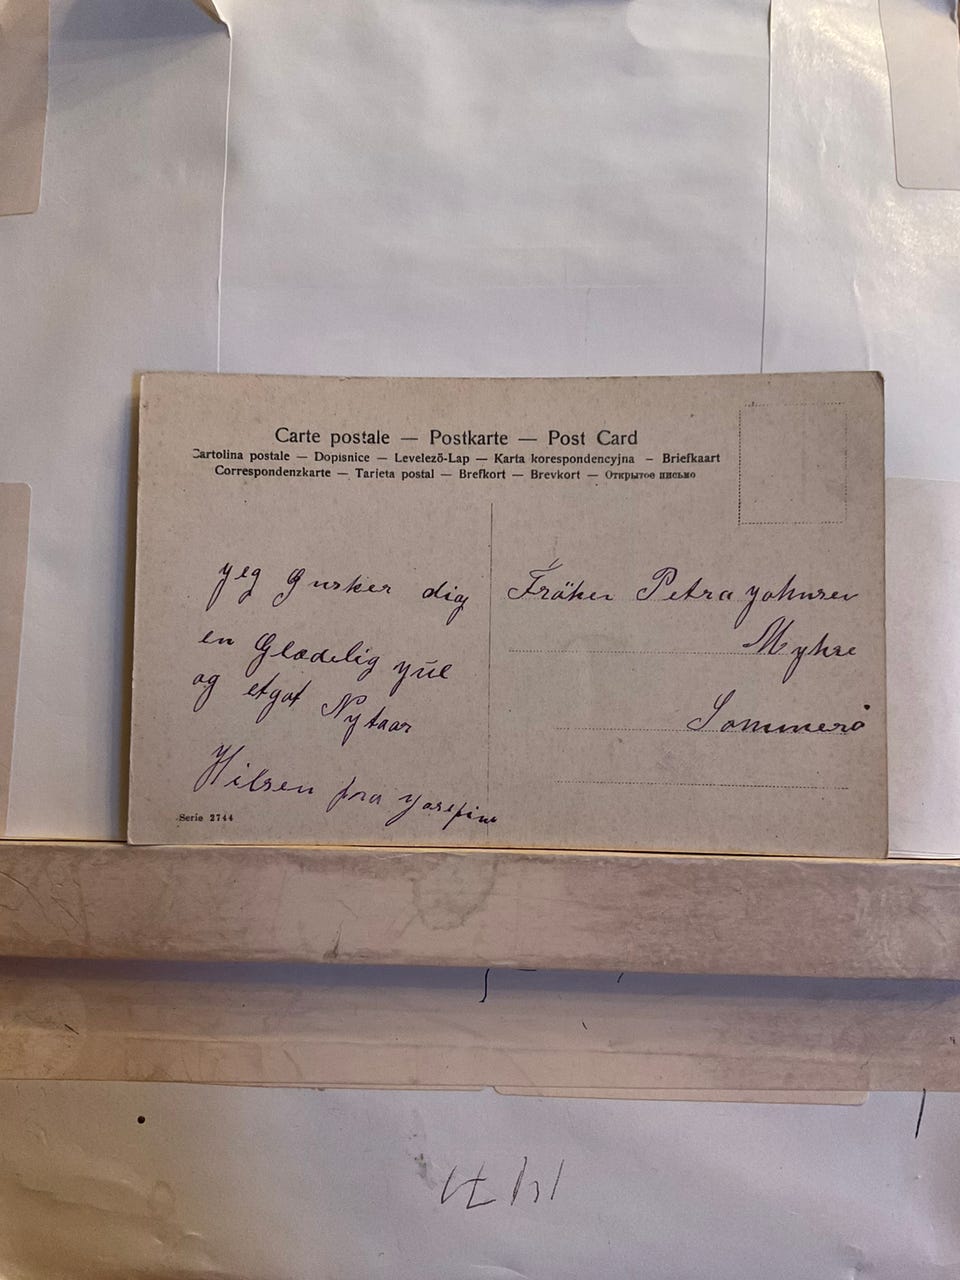 Carte postale — Postkarte — Post Card
Cartolina postale — Dopisnice — Levelező-Lap — Karta korespondencyjna — Briefkaart
Correspondenzkarte — Tarjeta postal — Brefkort — Brevkort — Открытое письмо
yeg Ønsker dig
en Glædelig yul
og etgot Nytaar
Hilsen fra yosefine
Fröken Petra yohnsen
Myhre
Sommerø
Serie 2744